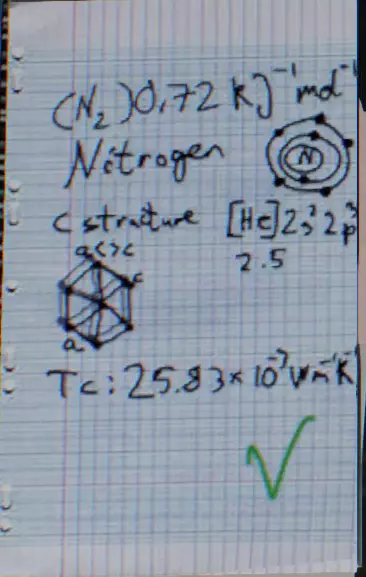 (N₂) 0.72 kJ⁻¹mol⁻¹
Nitrogen
N
C structure [He]2s²2p³
a<>c 2.5
c
a
Tc: 25.83 × 10⁻³ Wm⁻¹K⁻¹